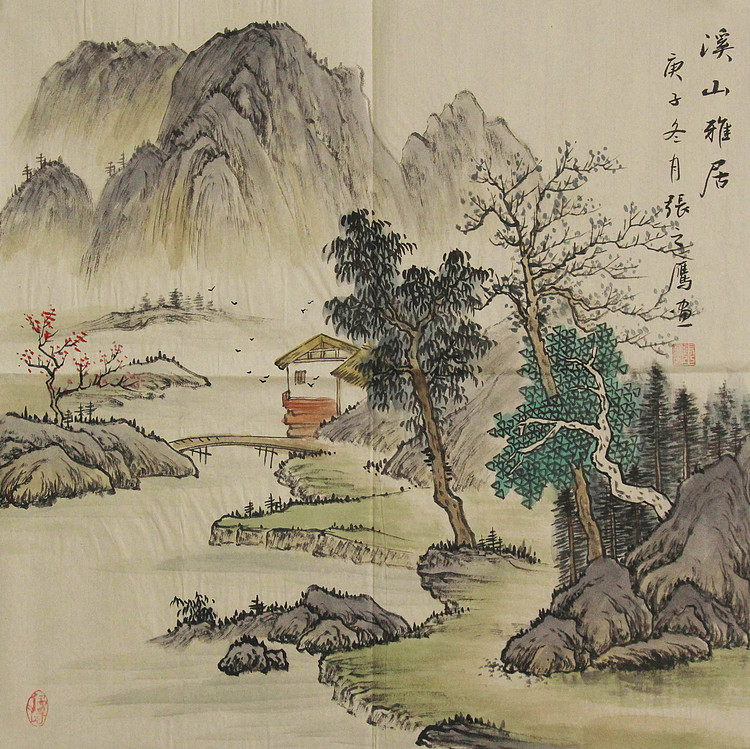 溪山雅居
庚子冬月張子鷹画